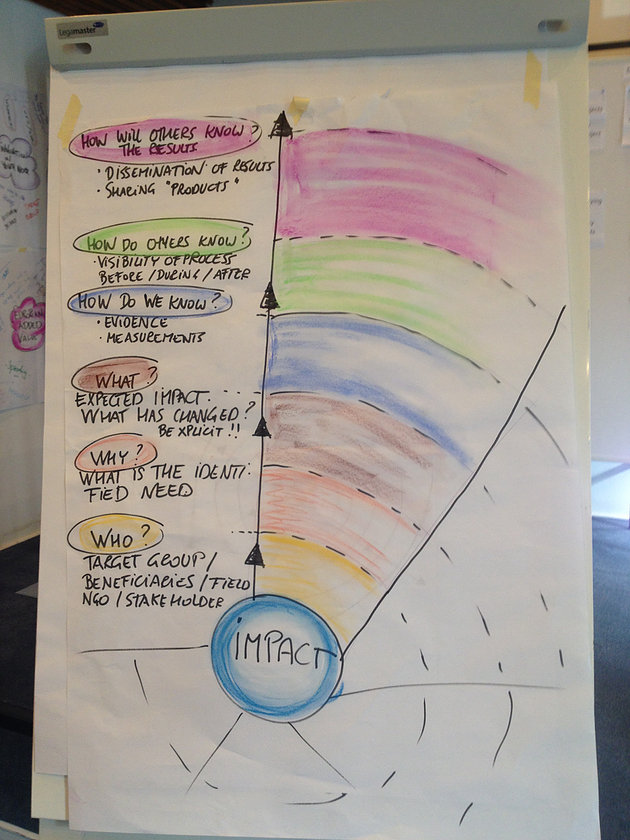 Legamaster
HOW WILL OTHERS KNOW?
THE RESULTS
· DISSEMINATION OF RESULTS
· SHARING "PRODUCTS"
HOW DO OTHERS KNOW?
· VISIBILITY OF PROCESS
BEFORE / DURING / AFTER
HOW DO WE KNOW?
· EVIDENCE
· MEASUREMENTS
WHAT?
EXPECTED IMPACT.
WHAT HAS CHANGED?
BE XPLICIT!!
WHY?
WHAT IS THE IDENTI:
FIED NEED
WHO?
TARGET GROUP/
BENEFICIARIES / FIELD
NGO / STAKEHOLDER
IMPACT
ADDED
VALUE